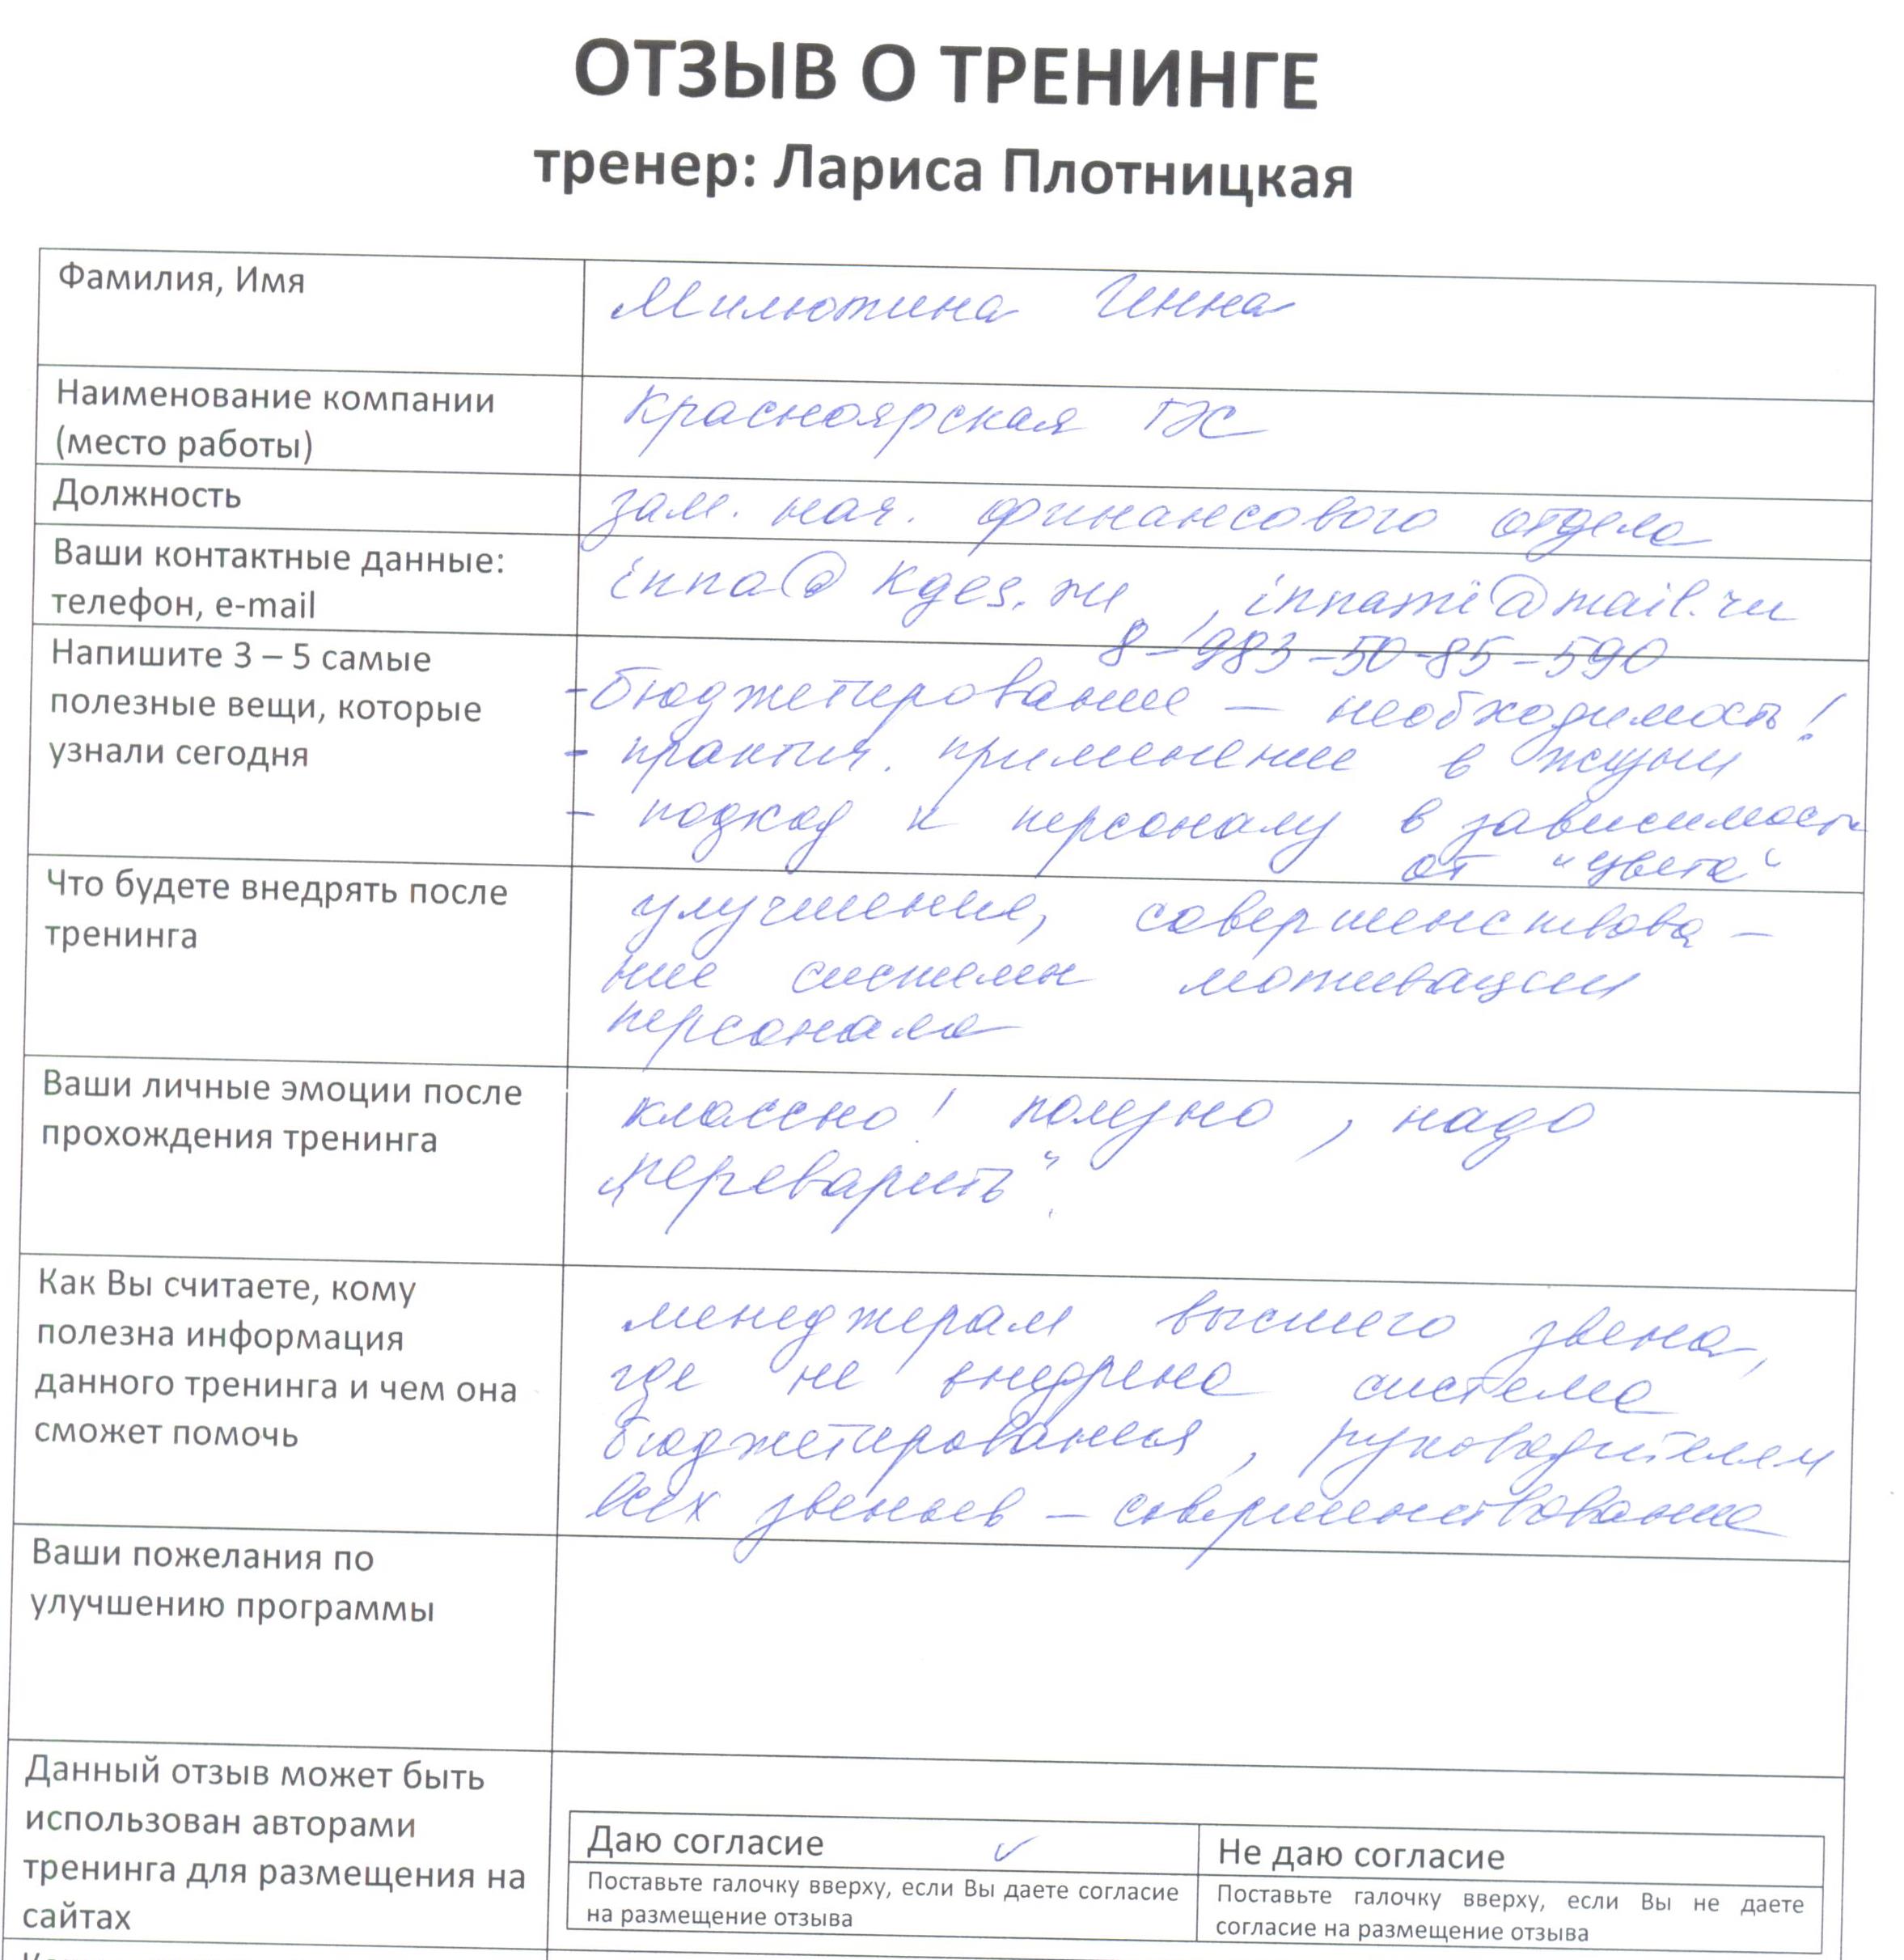 ОТЗЫВ О ТРЕНИНГЕ
тренер: Лариса Плотницкая
Фамилия, Имя
Милютина Инна
Наименование компании
(место работы)
Красноярская ГЭС
Должность
зам. нач. финансового отдела
Ваши контактные данные:
телефон, e-mail
inna@kges.ru, innami@mail.ru
8-983-50-85-590
Напишите 3 – 5 самые
полезные вещи, которые
узнали сегодня
- бюджетирование – необходимость!
- практич. применение в жизни
- подход к персоналу в зависимости
от "цвета"
Что будете внедрять после
тренинга
улучшение, совершенствова-
ние системы мотивации
персонала
Ваши личные эмоции после
прохождения тренинга
классно! полезно, надо
„переварить".
Как Вы считаете, кому
полезна информация
данного тренинга и чем она
сможет помочь
менеджерам высшего звена,
где не внедрена система
бюджетирования, руководителям
всех звеньев – совершенствование
Ваши пожелания по
улучшению программы
Данный отзыв может быть
использован авторами
тренинга для размещения на
сайтах
Даю согласие ✓
Поставьте галочку вверху, если Вы даете согласие
на размещение отзыва
Не даю согласие
Поставьте галочку вверху, если Вы не даете
согласие на размещение отзыва